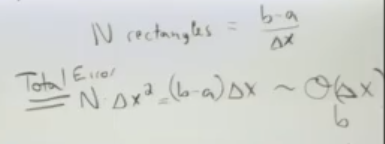 N rectangles = b-a / Δx
Total Error
N·Δx² = (b-a)Δx ~ O(Δx)
b